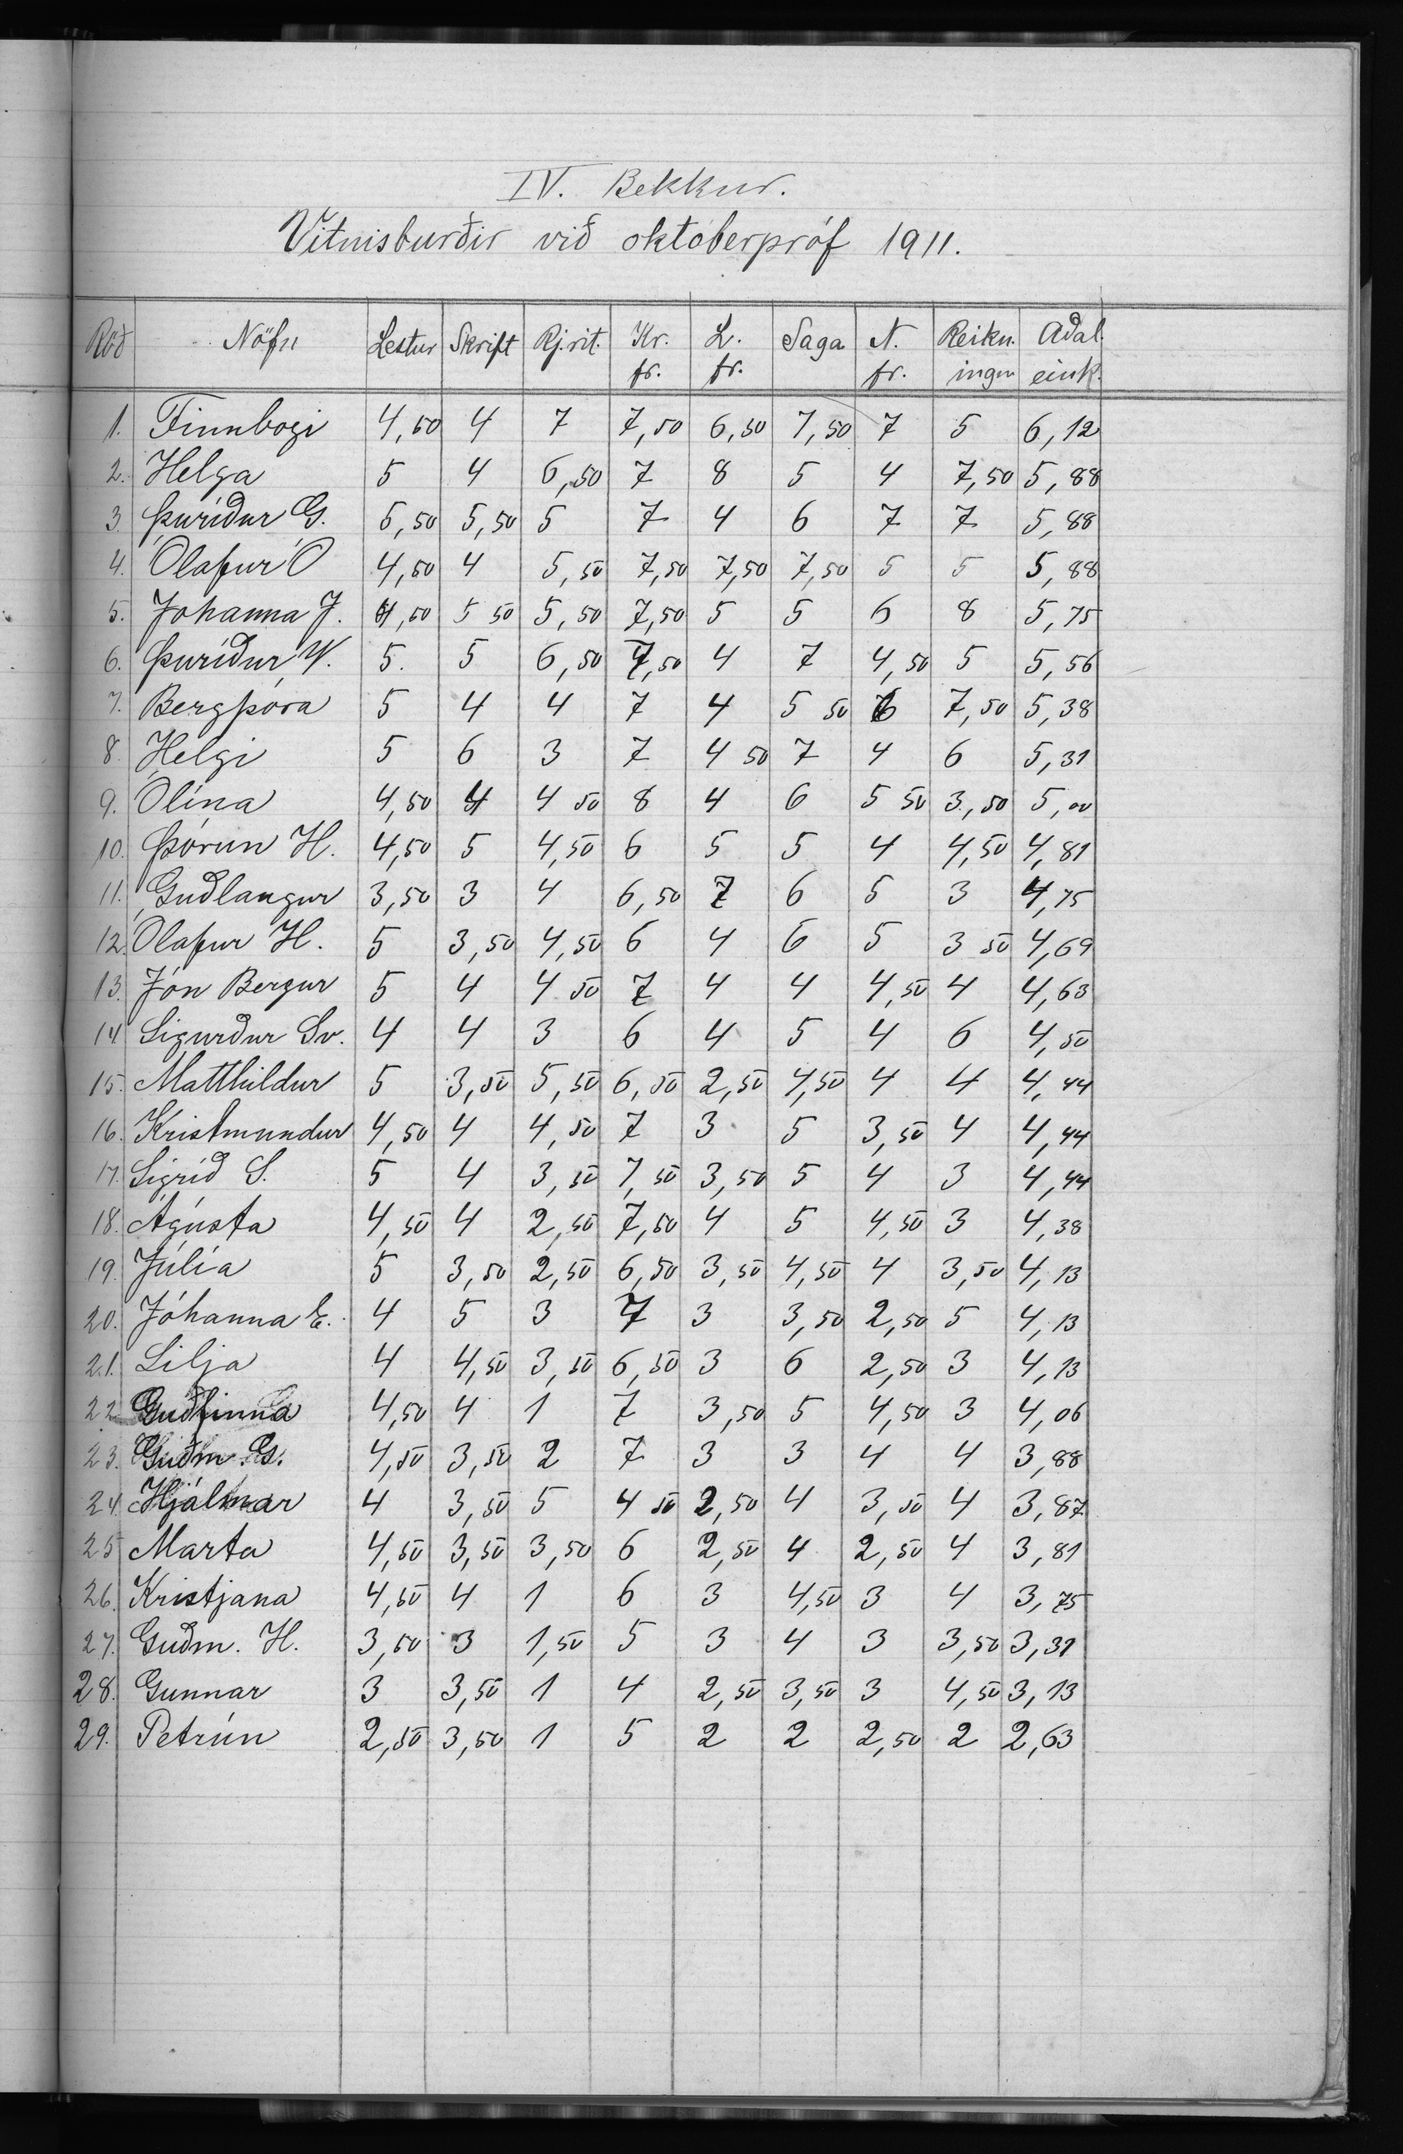 IV. Bekkur.
Vitnisburðir við oktoberpróf 1911.
Röð Nöfn Lestur Skrift Rj.rit. Kr. fr. L. fr. Saga N. fr. Reikn. ingur Aðal. eink.
1. Finnbogi 4,50 4 7 7,50 6,50 7,50 7 5 6,12
2. Helga 5 4 6,50 7 8 5 4 7,50 5,88
3. Þuríður G. 5,50 5,50 5 7 4 6 7 7 5,88
4. Ólafur Ó 4,50 4 5,50 7,50 7,50 7,50 5 5 5,88
5. Johanna J. 4,50 5 50 5,50 7,50 5 5 6 8 5,75
6. Þuríður V. 5. 5 6,50 7,50 4 7 4,50 5 5,56
7. Bergþóra 5 4 4 7 4 5 50 6 7,50 5,38
8 Helgi 5 6 3 7 4 50 7 4 6 5,31
9. Ólína 4,50 4 4 50 8 4 6 5 50 3,50 5,00
10. Þórun H. 4,50 5 4,50 6 5 5 4 4,50 4,81
11. Guðlaugur 3,50 3 4 6,50 7 6 5 3 4,75
12. Ólafur H. 5 3,50 4,50 6 4 6 5 3 50 4,69
13. Jón Bergur 5 4 4 50 7 4 4 4,50 4 4,63
14 Sigurður Sv. 4 4 3 6 4 5 4 6 4,50
15. Matthildur 5 3,50 5,50 6,50 2,50 4,50 4 4 4,44
16. Kristmundur 4,50 4 4,50 7 3 5 3,50 4 4,44
17. Sigríð S. 5 4 3,50 7,50 3,50 5 4 3 4,44
18. Ágústa 4,50 4 2,50 7,50 4 5 4,50 3 4,38
19. Júlía 5 3,50 2,50 6,50 3,50 4,50 4 3,50 4,13
20. Jóhanna E. 4 5 3 7 3 3,50 2,50 5 4,13
21. Lilja 4 4,50 3,50 6,50 3 6 2,50 3 4,13
22 Guðfinna 4,50 4 1 7 3,50 5 4,50 3 4,06
23. Guðm. G. 4,50 3,50 2 7 3 3 4 4 3,88
24. Hjálmar 4 3,50 5 4 50 2,50 4 3,50 4 3,87
25 Marta 4,50 3,50 3,50 6 2,50 4 2,50 4 3,81
26. Kristjana 4,50 4 1 6 3 4,50 3 4 3,75
27. Guðm. H. 3,50 3 1,50 5 3 4 3 3,50 3,31
28. Gunnar 3 3,50 1 4 2,50 3,50 3 4,50 3,13
29. Petrún 2,50 3,50 1 5 2 2 2,50 2 2,63